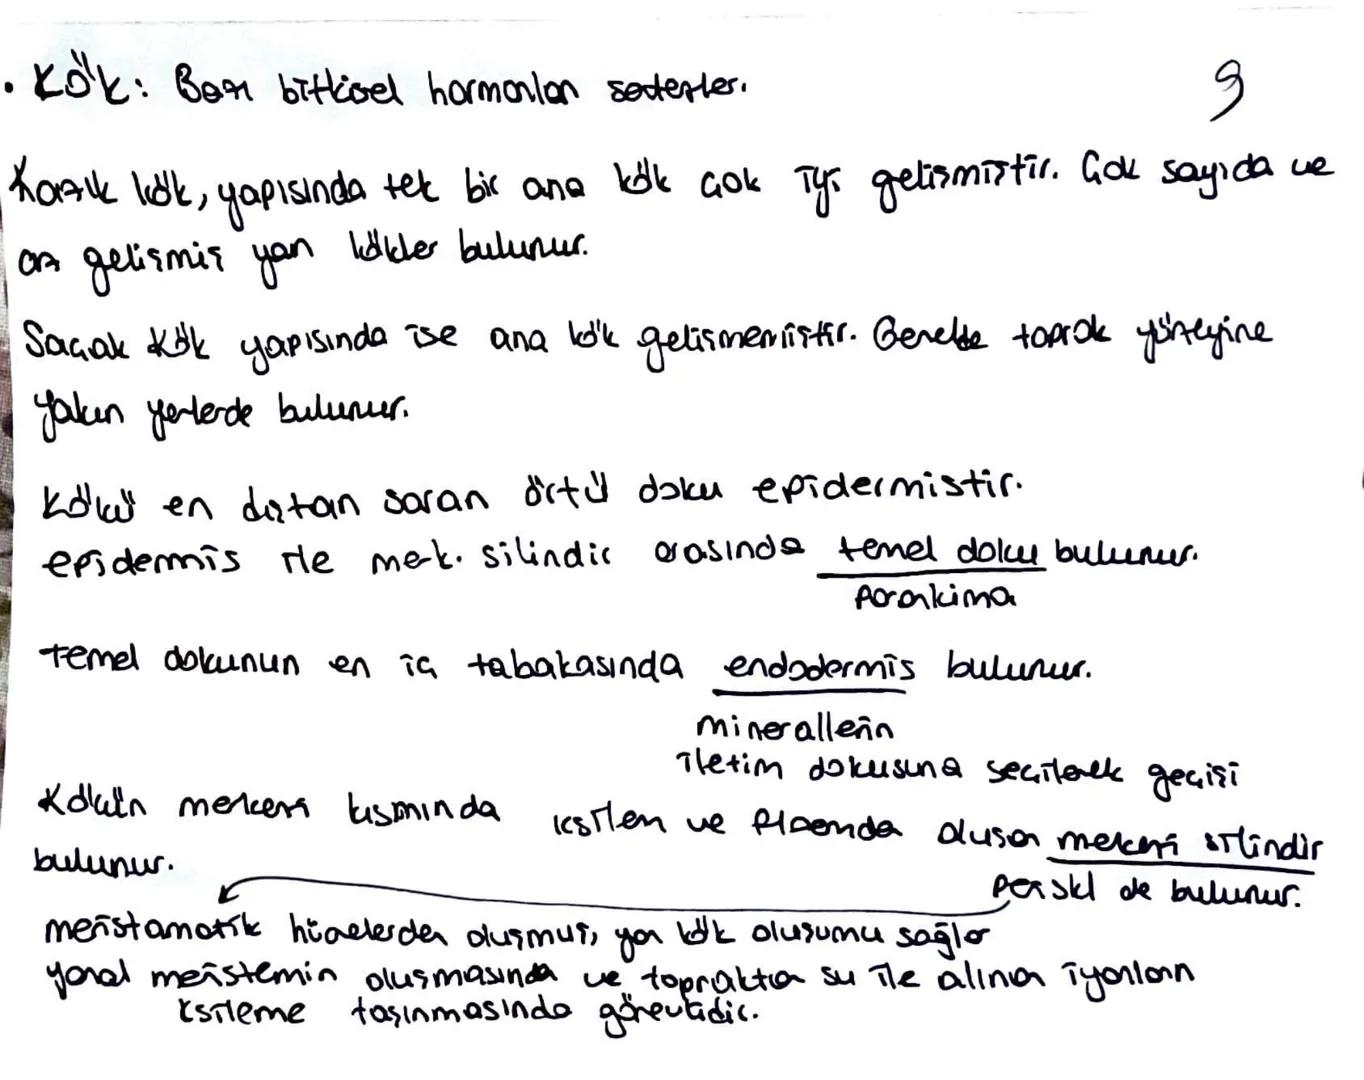 • Kök: Bazı bitkisel hormonları sentezler.
9
Kazık kök, yapısında tek bir ana kök çok iyi gelişmiştir. Çok sayıda ve
az gelişmiş yan kökler bulunur.
Saçak kök yapısında ise ana kök gelişmemiştir. Genelde toprak yüzeyine
yakın yerlerde bulunur.
Kökü en dıştan saran örtü doku epidermistir.
epidermis ile merk. silindir arasında temel doku bulunur.
parankima
temel dokunun en iç tabakasında endodermis bulunur.
minerallerin
iletim dokusuna seçilerek geçişi
Kökün merkezi kısmında ksilem ve floemda oluşan merkezi silindir
bulunur.
perisikl de bulunur.
meristamatik hücrelerden oluşmuş, yan kök oluşumu sağlar
yanal meristemin oluşmasında ve topraktan su ile alınan iyonların
ksileme taşınmasında görevlidir.